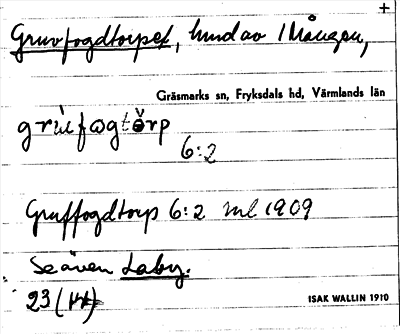 +
Gruvfogdtorpet, hmd av 1 Mången,
Gräsmarks sn, Fryksdals hd, Värmlands län
6:2
Gruffogdtorp 6:2 ml 1909
Se även Laby.
23 (14)
ISAK WALLIN 1910